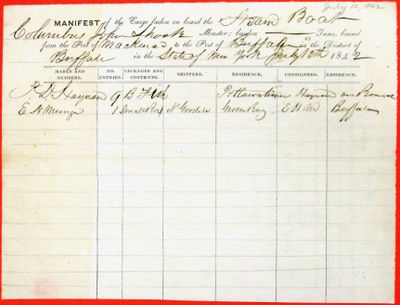 July 12, 1842
MANIFEST of the Cargo laden on board the Steam Boat
Columbus John Shook Master; burden Tons, bound
from the Port of Mackinac to the Port of Buffalo in the District of
Buffalo in the State of New York July 12th 1842
MARKS AND NUMBERS. NO. ENTRIES. PACKAGES AND CONTENTS. SHIPPERS. RESIDENCE. CONSIGNEES. RESIDENCE.
9 B Fish Pottawatomie
E. H. 1 Green Bay E H M Buffalo